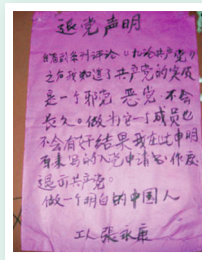 退党声明
自看到系列评论《九论共产党》
之后我知道了共产党的实质
是一个邪党 恶党 不会
长久。做为它一个成员也
不会有好结果我在此申明
写的入党申请书作废
退出共产党。
做一个明白的中国人
工人 张永